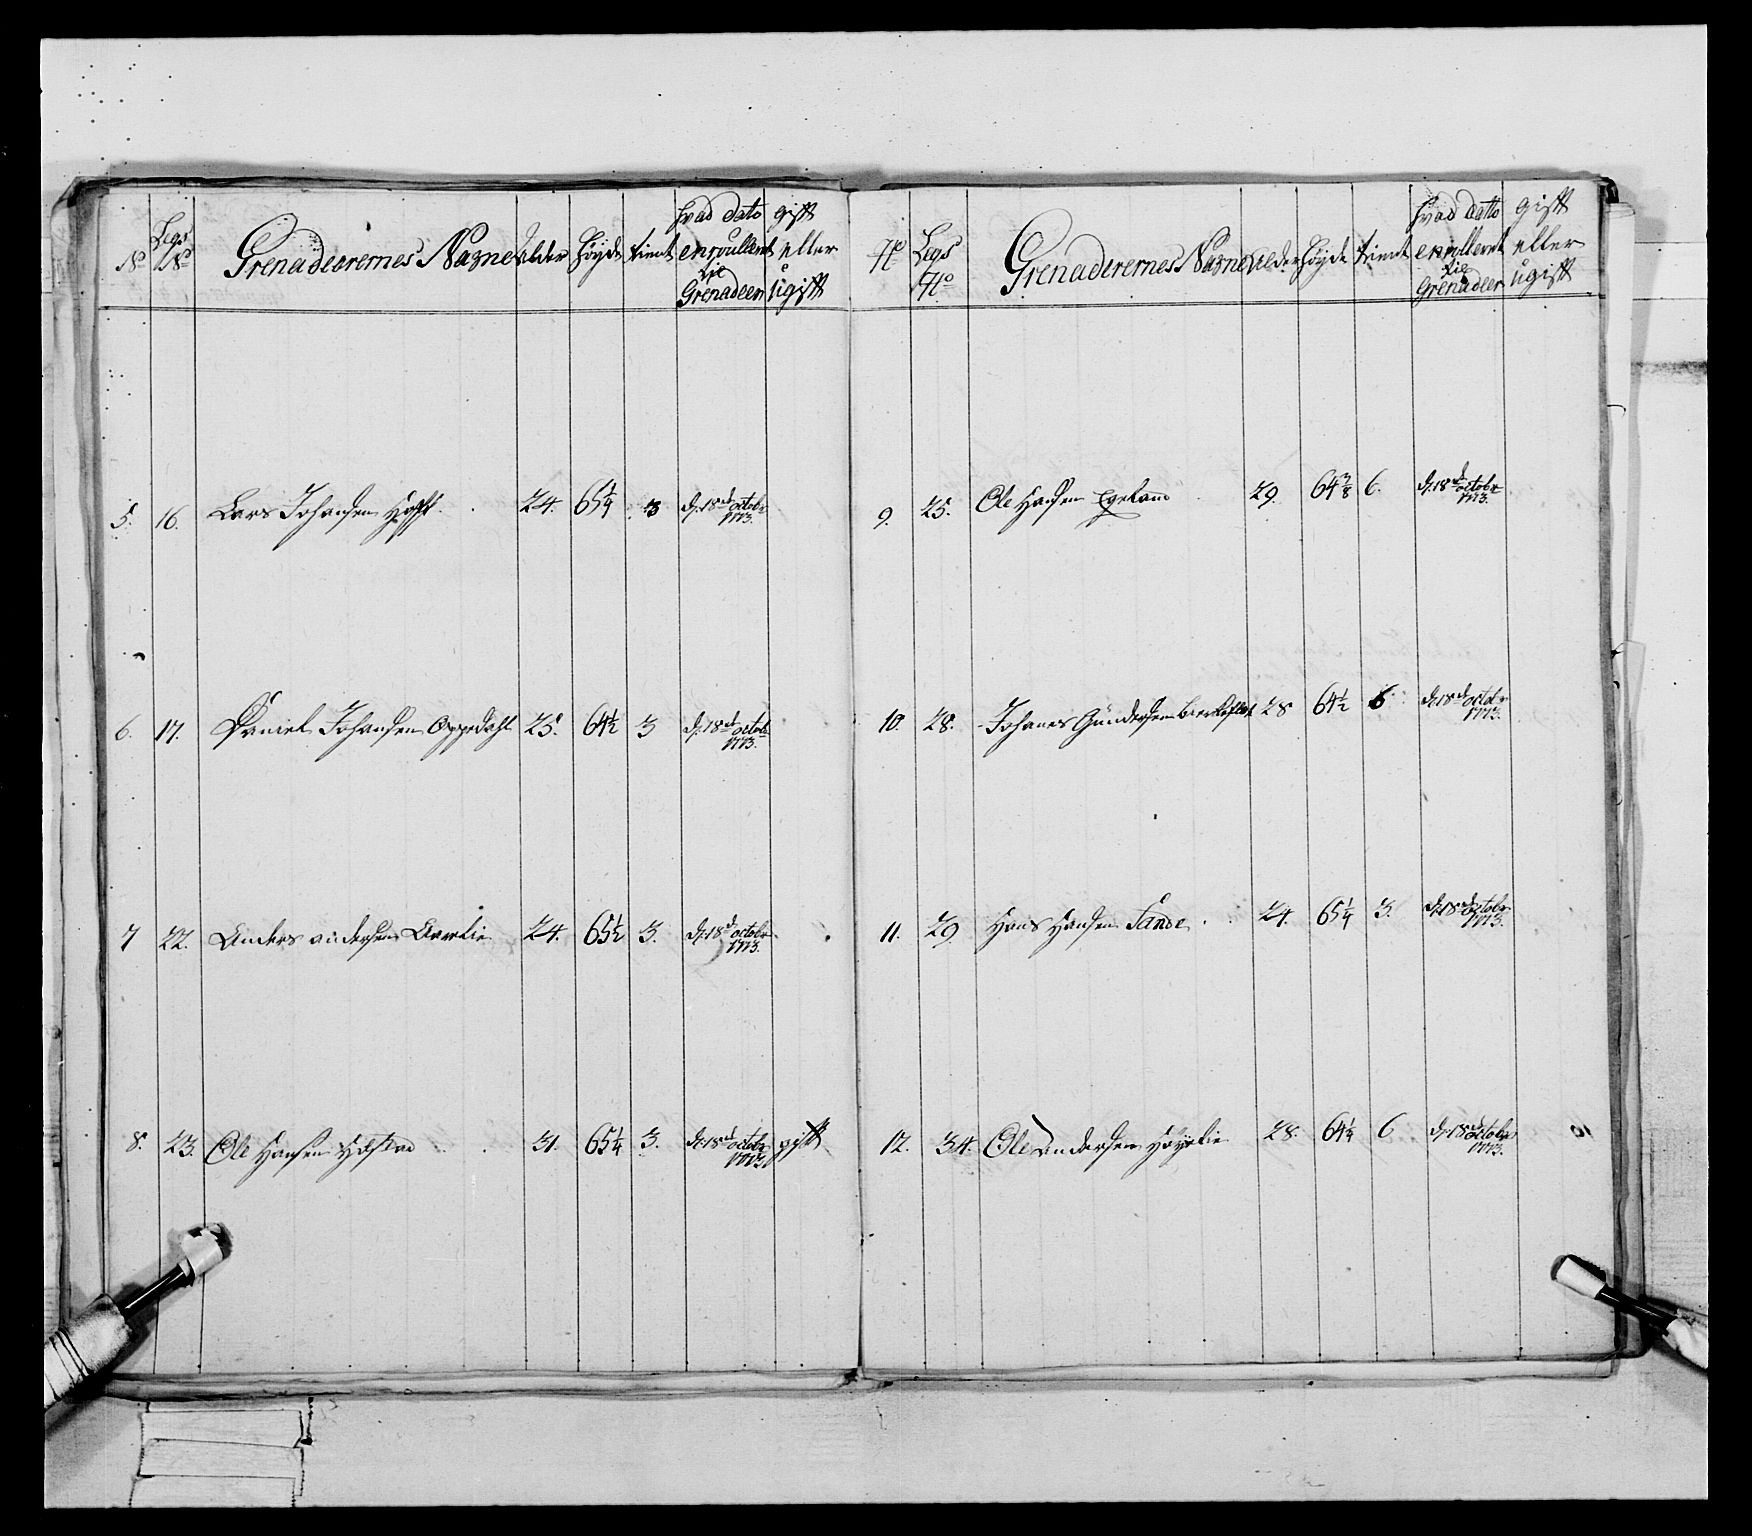 No Legs No Grenadeerernes Nagne alder höyde tient hvad dato enroullert til Grenadeer gift eller ugift
5. 16. Lars Johansen 24. 65 1/4 3 d. 18de octobr 1773.
6. 17. Daniel Johansen Oppedahl 25. 64 1/2 3 d. 18de octobr 1773.
7 22. Anders andersen 24. 65 1/2 3. d. 18de octobr 1773.
8. 23. Ole Hansen 31. 65 1/4 3. d. 18de octobr 1773. gift
No Legs No Grenaderernes Nagne alder höyde tient hvad datto enrollert til Grenadeer gift eller ugift
9. 25. Ole Hansen Egeland 29. 64 3/8 6. d. 18de octobr 1773.
10. 28. Johanes Gundersen 28 64 1/2 6 d. 18de octobr 1773.
11. 29 Hans Hansen Sande 24. 65 1/4 3. d. 18de octobr 1773.
12. 34. Ole Andersen 28. 64 1/4 6 d. 18de octobr 1773.
10